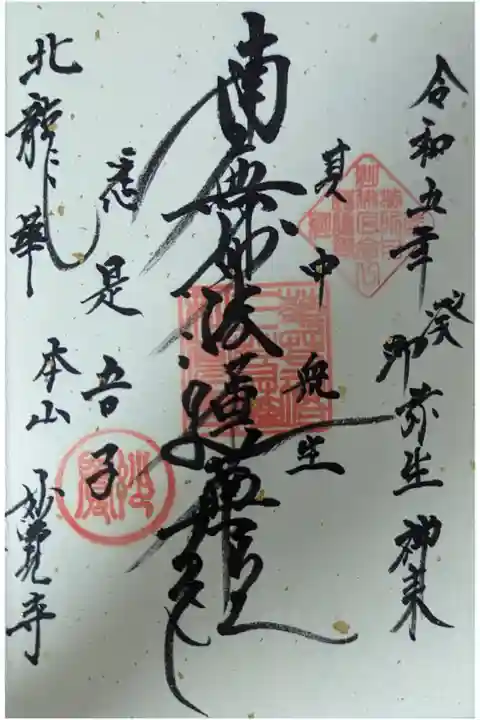 令和五年癸卯弥生
其中衆生
南無妙法蓮華経
悉是吾子
北龍華
本山
妙覚寺
妙覚